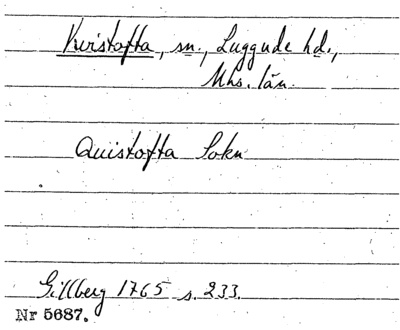 Kvistofta, sn., Luggude hd.,
Mhs. län.
Quistofta Sokn
Gillberg 1765 s. 233.
Nr 5687.